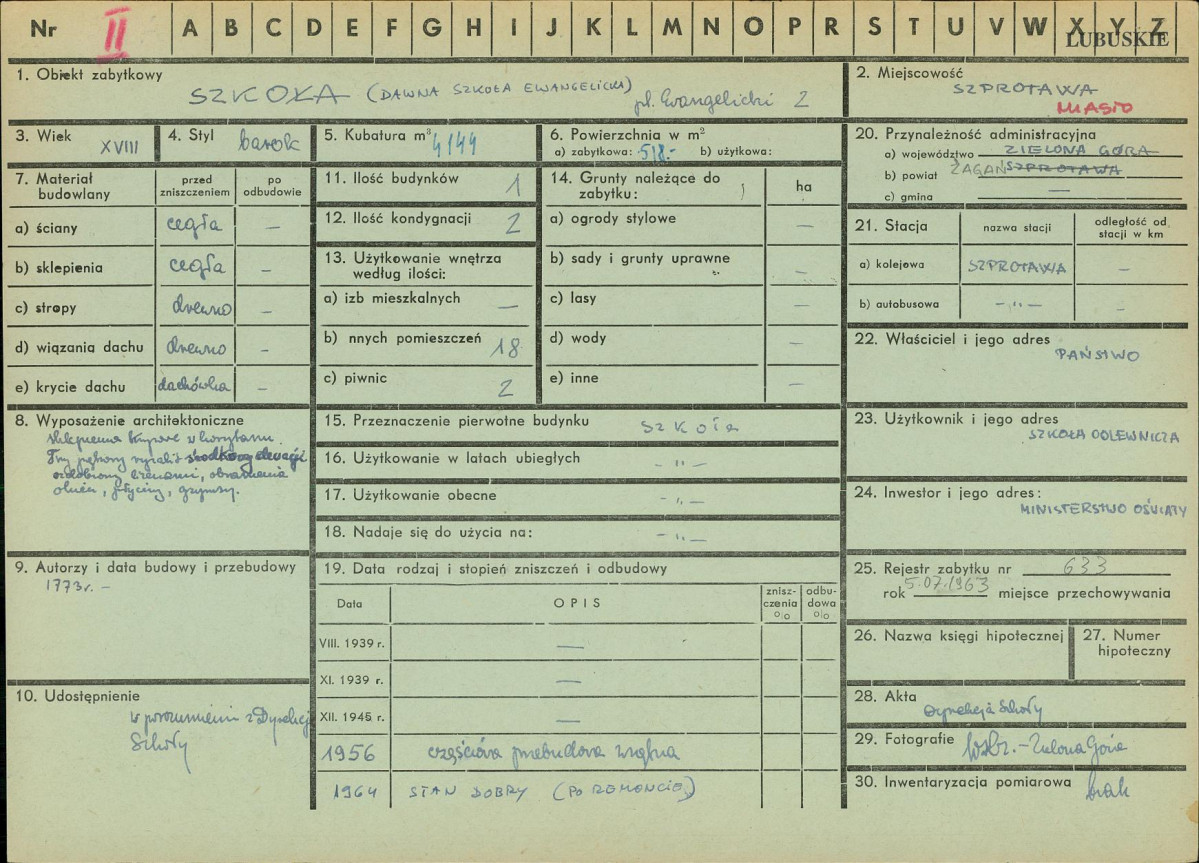 Nr II A B C D E F G H I J K L M N O P R S T U V W X Y Z
LUBUSKIE
1. Obiekt zabytkowy
SZKOŁA (DAWNA SZKOŁA EWANGELICKA) pl. Ewangelicki 2
2. Miejscowość
SZPROTAWA
MIASTO
3. Wiek XVIII
4. Styl barok
5. Kubatura m³ 4144
6. Powierzchnia w m²
a) zabytkowa: 518.- b) użytkowa:
20. Przynależność administracyjna
a) województwo ZIELONA GÓRA
b) powiat ŻAGAŃ SZPROTAWA
c) gmina —
7. Materiał budowlany
przed zniszczeniem
po odbudowie
a) ściany cegła —
b) sklepienia cegła —
c) stropy drewno —
d) wiązania dachu drewno —
e) krycie dachu dachówka —
11. Ilość budynków 1
12. Ilość kondygnacji 2
13. Użytkowanie wnętrza
według ilości:
a) izb mieszkalnych —
b) nnych pomieszczeń 18
c) piwnic 2
14. Grunty należące do
zabytku:
ha
a) ogrody stylowe —
b) sady i grunty uprawne —
c) lasy —
d) wody —
e) inne —
21. Stacja
nazwa stacji
odległość od
stacji w km
a) kolejowa SZPROTAWA —
b) autobusowa -"- —
22. Właściciel i jego adres
PAŃSTWO
8. Wyposażenie architektoniczne
sklepienia w korytarzu.
środkowy elewacji
ozdobiony lizenami, obramienia
okien, gzymsy.
15. Przeznaczenie pierwotne budynku szkoła
16. Użytkowanie w latach ubiegłych -"-
17. Użytkowanie obecne -"-
18. Nadaje się do użycia na: -"-
23. Użytkownik i jego adres
SZKOŁA ODLEWNICZA
24. Inwestor i jego adres:
MINISTERSTWO OŚWIATY
9. Autorzy i data budowy i przebudowy
1773r. -
19. Data rodzaj i stopień zniszczeń i odbudowy
Data OPIS
znisz-
czenia
o/o
odbu-
dowa
o/o
VIII. 1939 r. —
XI. 1939 r. —
XII. 1945 r. —
1956 częściowa przebudowa wnętrza
1964 STAN DOBRY (PO REMONCIE)
25. Rejestr zabytku nr 633
rok 5.07.1963 miejsce przechowywania
26. Nazwa księgi hipotecznej
27. Numer
hipoteczny
10. Udostępnienie
w porozumieniu z Dyrekcją
Szkoły
28. Akta
Dyrekcja Szkoły
29. Fotografie Zielona Góra
30. Inwentaryzacja pomiarowa brak